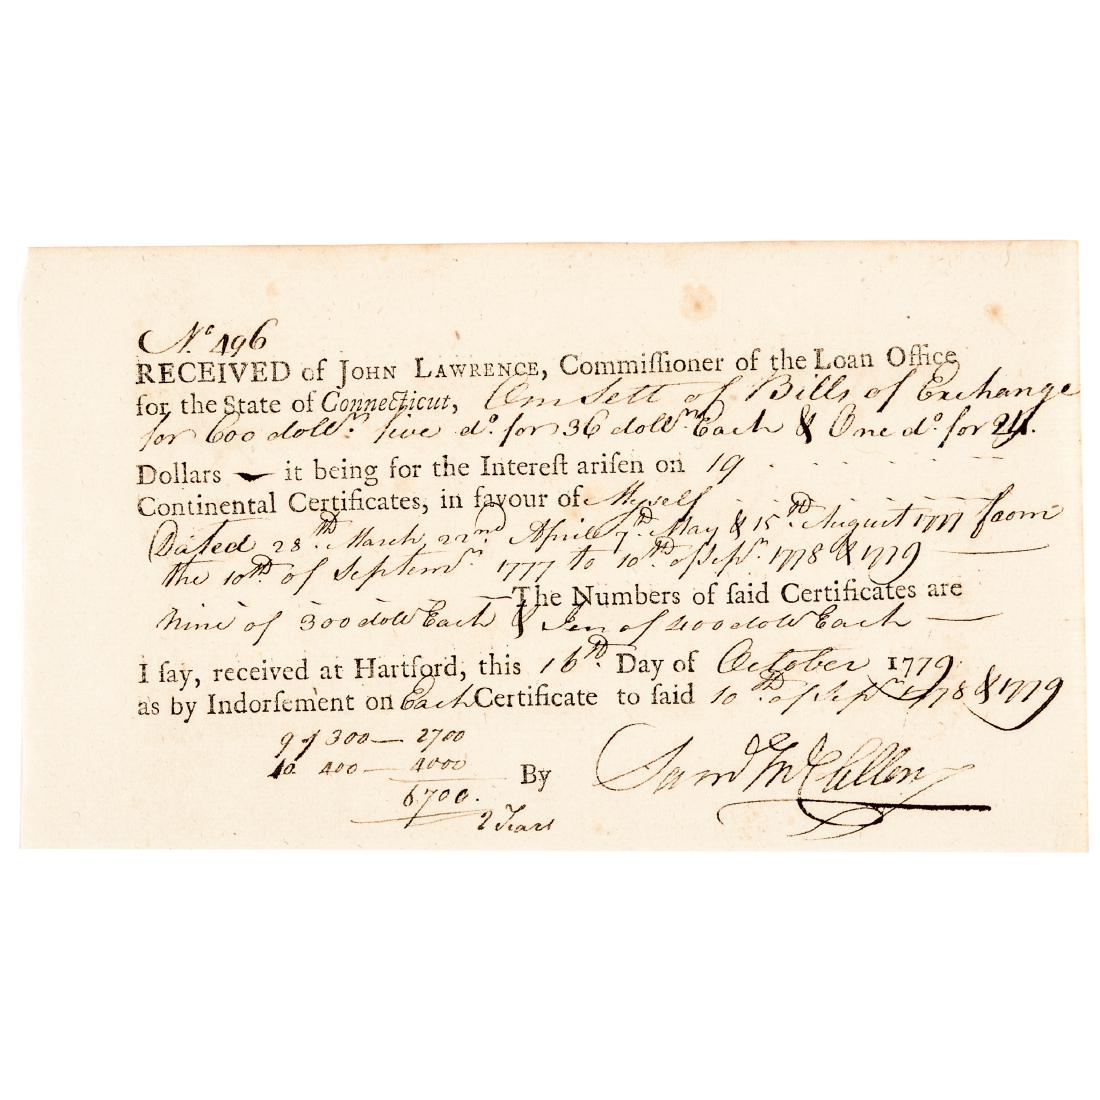 No. 496
RECEIVED of JOHN LAWRENCE, Commiſſioner of the Loan Office
for the State of Connecticut, One Sett of Bills of Exchange
for 600 dollrs. five do. for 36 dollrs Each & One do. for 24.
Dollars — it being for the Intereſt ariſen on 19 . . . . . .
Continental Certificates, in favour of Myself
Dated 28th. March, 22nd April 7th. May & 15th. August 1777 from
the 10th. of Septemr. 1777 to 10th. of Sepr. 1778 & 1779 —
—The Numbers of ſaid Certificates are
Nine of 300 dolls Each & Ten of 400 dolls Each —
I ſay, received at Hartford, this 16th. Day of October 1779.
as by Indorſement on Each Certificate to ſaid 10th. of Sepr. 1778 & 1779
9 of 300 — 2700
10 400 — 4000
6700.
2 Years
By Saml McClellan